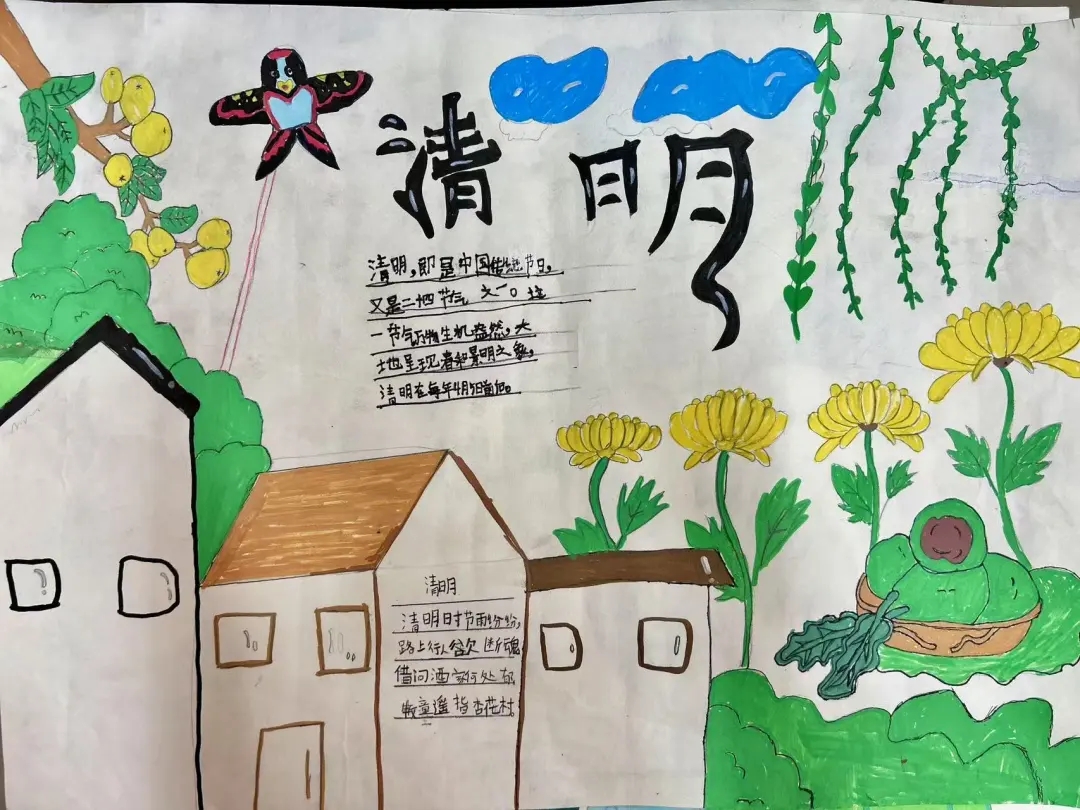 清明
清明,即是中国传统节日,
又是二十四节气之一
一节气万物生机盎然,大
地呈现春和景明之象,
清明在每年4月5日前后。
清明
清明日时节雨纷纷,
路上行人欲断魂
借问酒家何处有
牧童遥指杏花村。